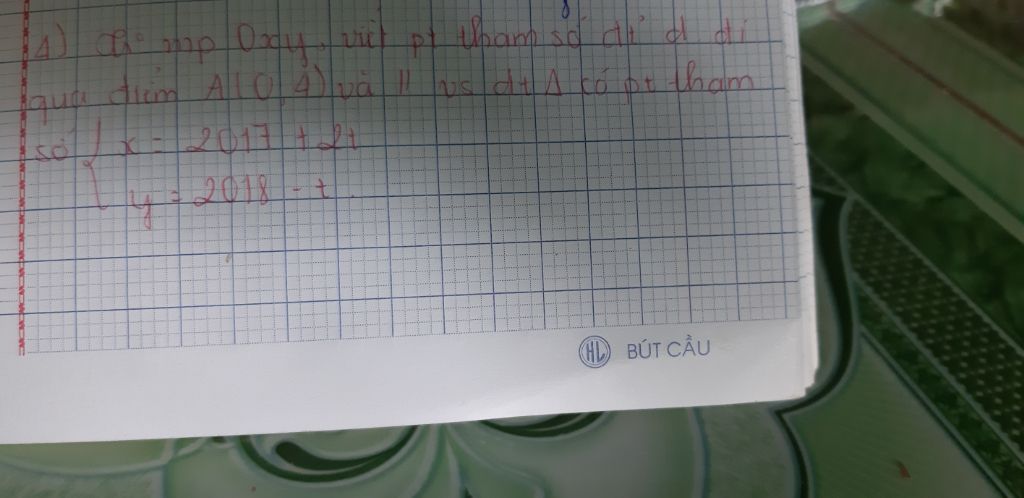 4) Tr° mp Oxy, viết pt tham số đt d đi
qua điểm A(0,4) và // vs đt Δ có pt tham
số { x = 2017 + 2t
y = 2018 - t
HL BÚT CẦU